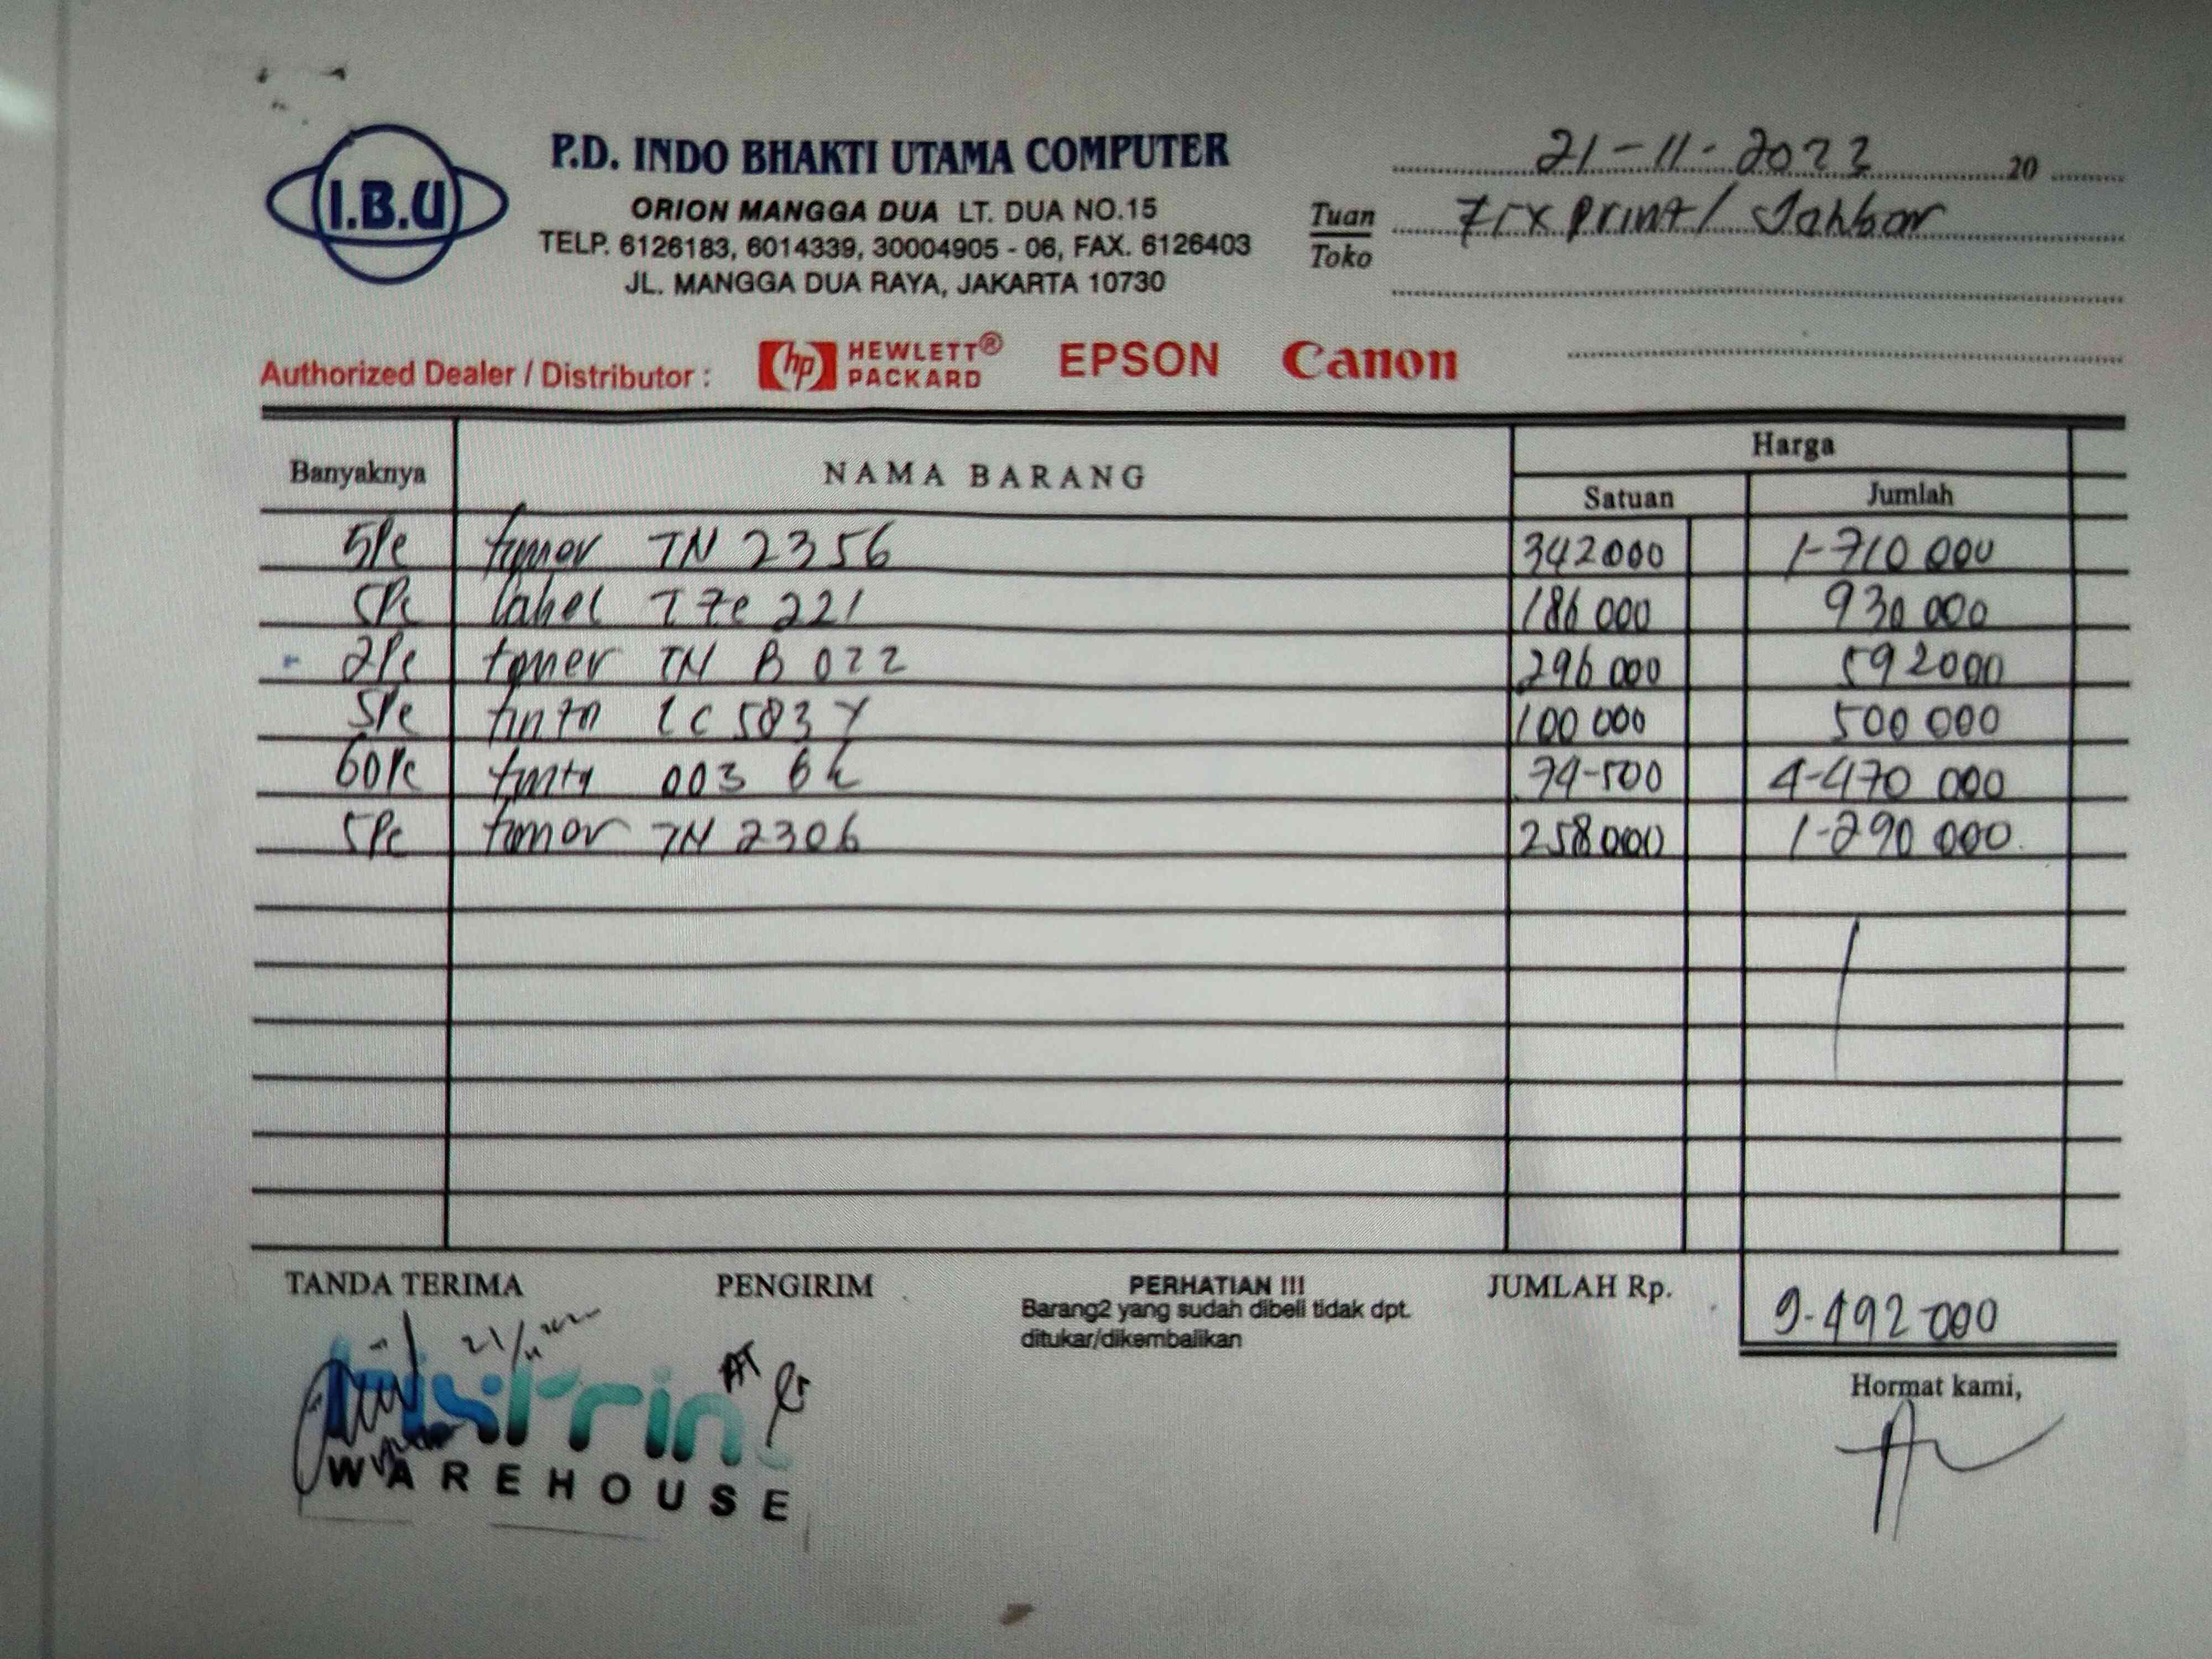 I.B.U
P.D. INDO BHAKTI UTAMA COMPUTER
ORION MANGGA DUA LT. DUA NO.15
TELP. 6126183, 6014339, 30004905 - 06, FAX. 6126403
JL. MANGGA DUA RAYA, JAKARTA 10730
21-11-2023 20
Tuan
Toko
Print / Jakbar
Authorized Dealer / Distributor : hp HEWLETT® PACKARD EPSON Canon
Banyaknya NAMA BARANG Harga
Satuan Jumlah
5Pc toner TN 2356 342000 1-710 000
5Pc label TZe 221 186 000 930 000
2Pc toner TN B 022 296 000 592000
5Pc tinta LC 583 Y 100 000 500 000
60Pc tinta 003 bk 74-500 4-470 000
5Pc toner TN 2306 258000 1-290 000
TANDA TERIMA PENGIRIM PERHATIAN !!! JUMLAH Rp. 9-492 000
Barang2 yang sudah dibeli tidak dpt.
ditukar/dikembalikan
Hormat kami,
WAREHOUSE